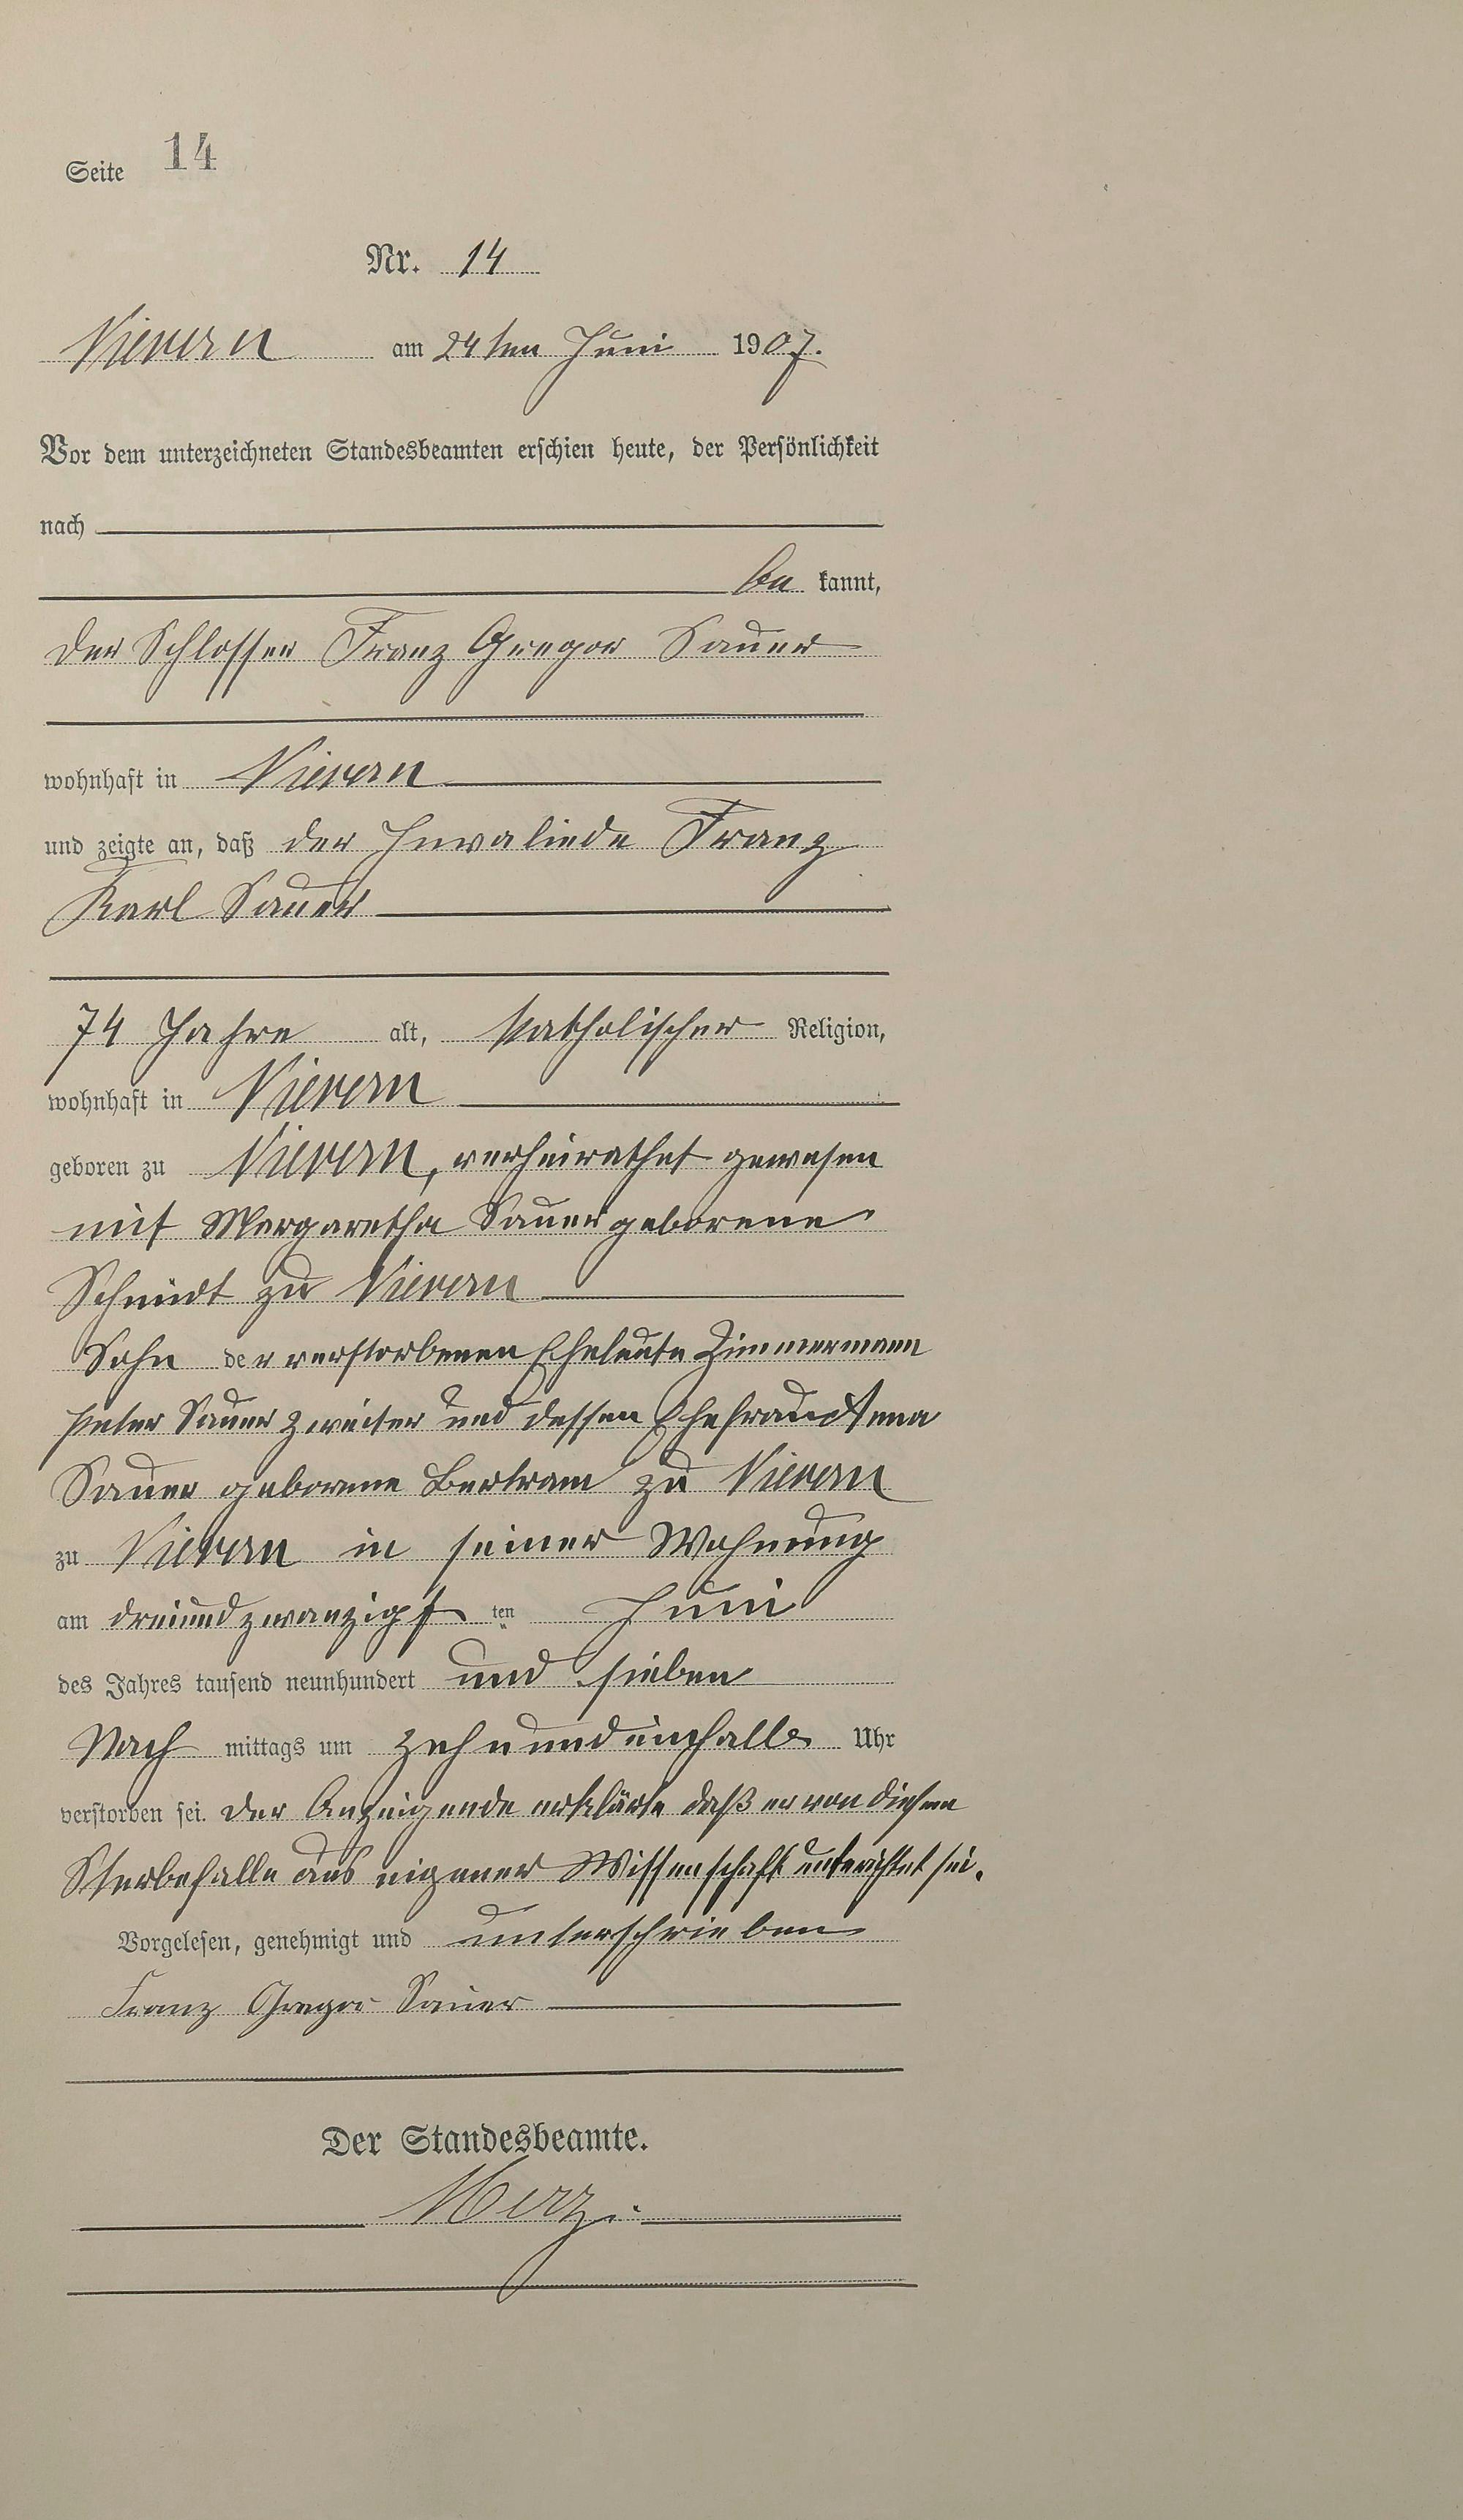 Seite 14
Nr. 14
Nievern am 24ten Juni 1907.
Vor dem unterzeichneten Standesbeamten erschien heute, der Persönlichkeit
nach
be kannt,
der Schlosser Franz Gregor Sauer
wohnhaft in Nievern
und zeigte an, daß der Invaliede Franz
Karl Sauer
74 Jahre alt, katholischer Religion,
wohnhaft in Nievern
geboren zu Nievern, verheirathet gewesen
mit Margaretha Sauer geborene
Schmidt zu Nievern
Sohn der verstorbenen Eheleute Zimmermann
Peter Sauer zweiter und dessen Ehefrau
Sauer geborene Bertram zu Nievern
zu Nievern in seiner Wohnung
am dreiundzwanzigs ten Juni
des Jahres tausend neunhundert und sieben
Nach mittags um zehnundeinhalb Uhr
verstorben sei. Der Anzeigende erklärte daß er von diesem
Sterbefalle aus eigener Wissenschaft unterrichtet sei.
Vorgelesen, genehmigt und unterschrieben
Franz Gregor Sauer
Der Standesbeamte.
Merz.